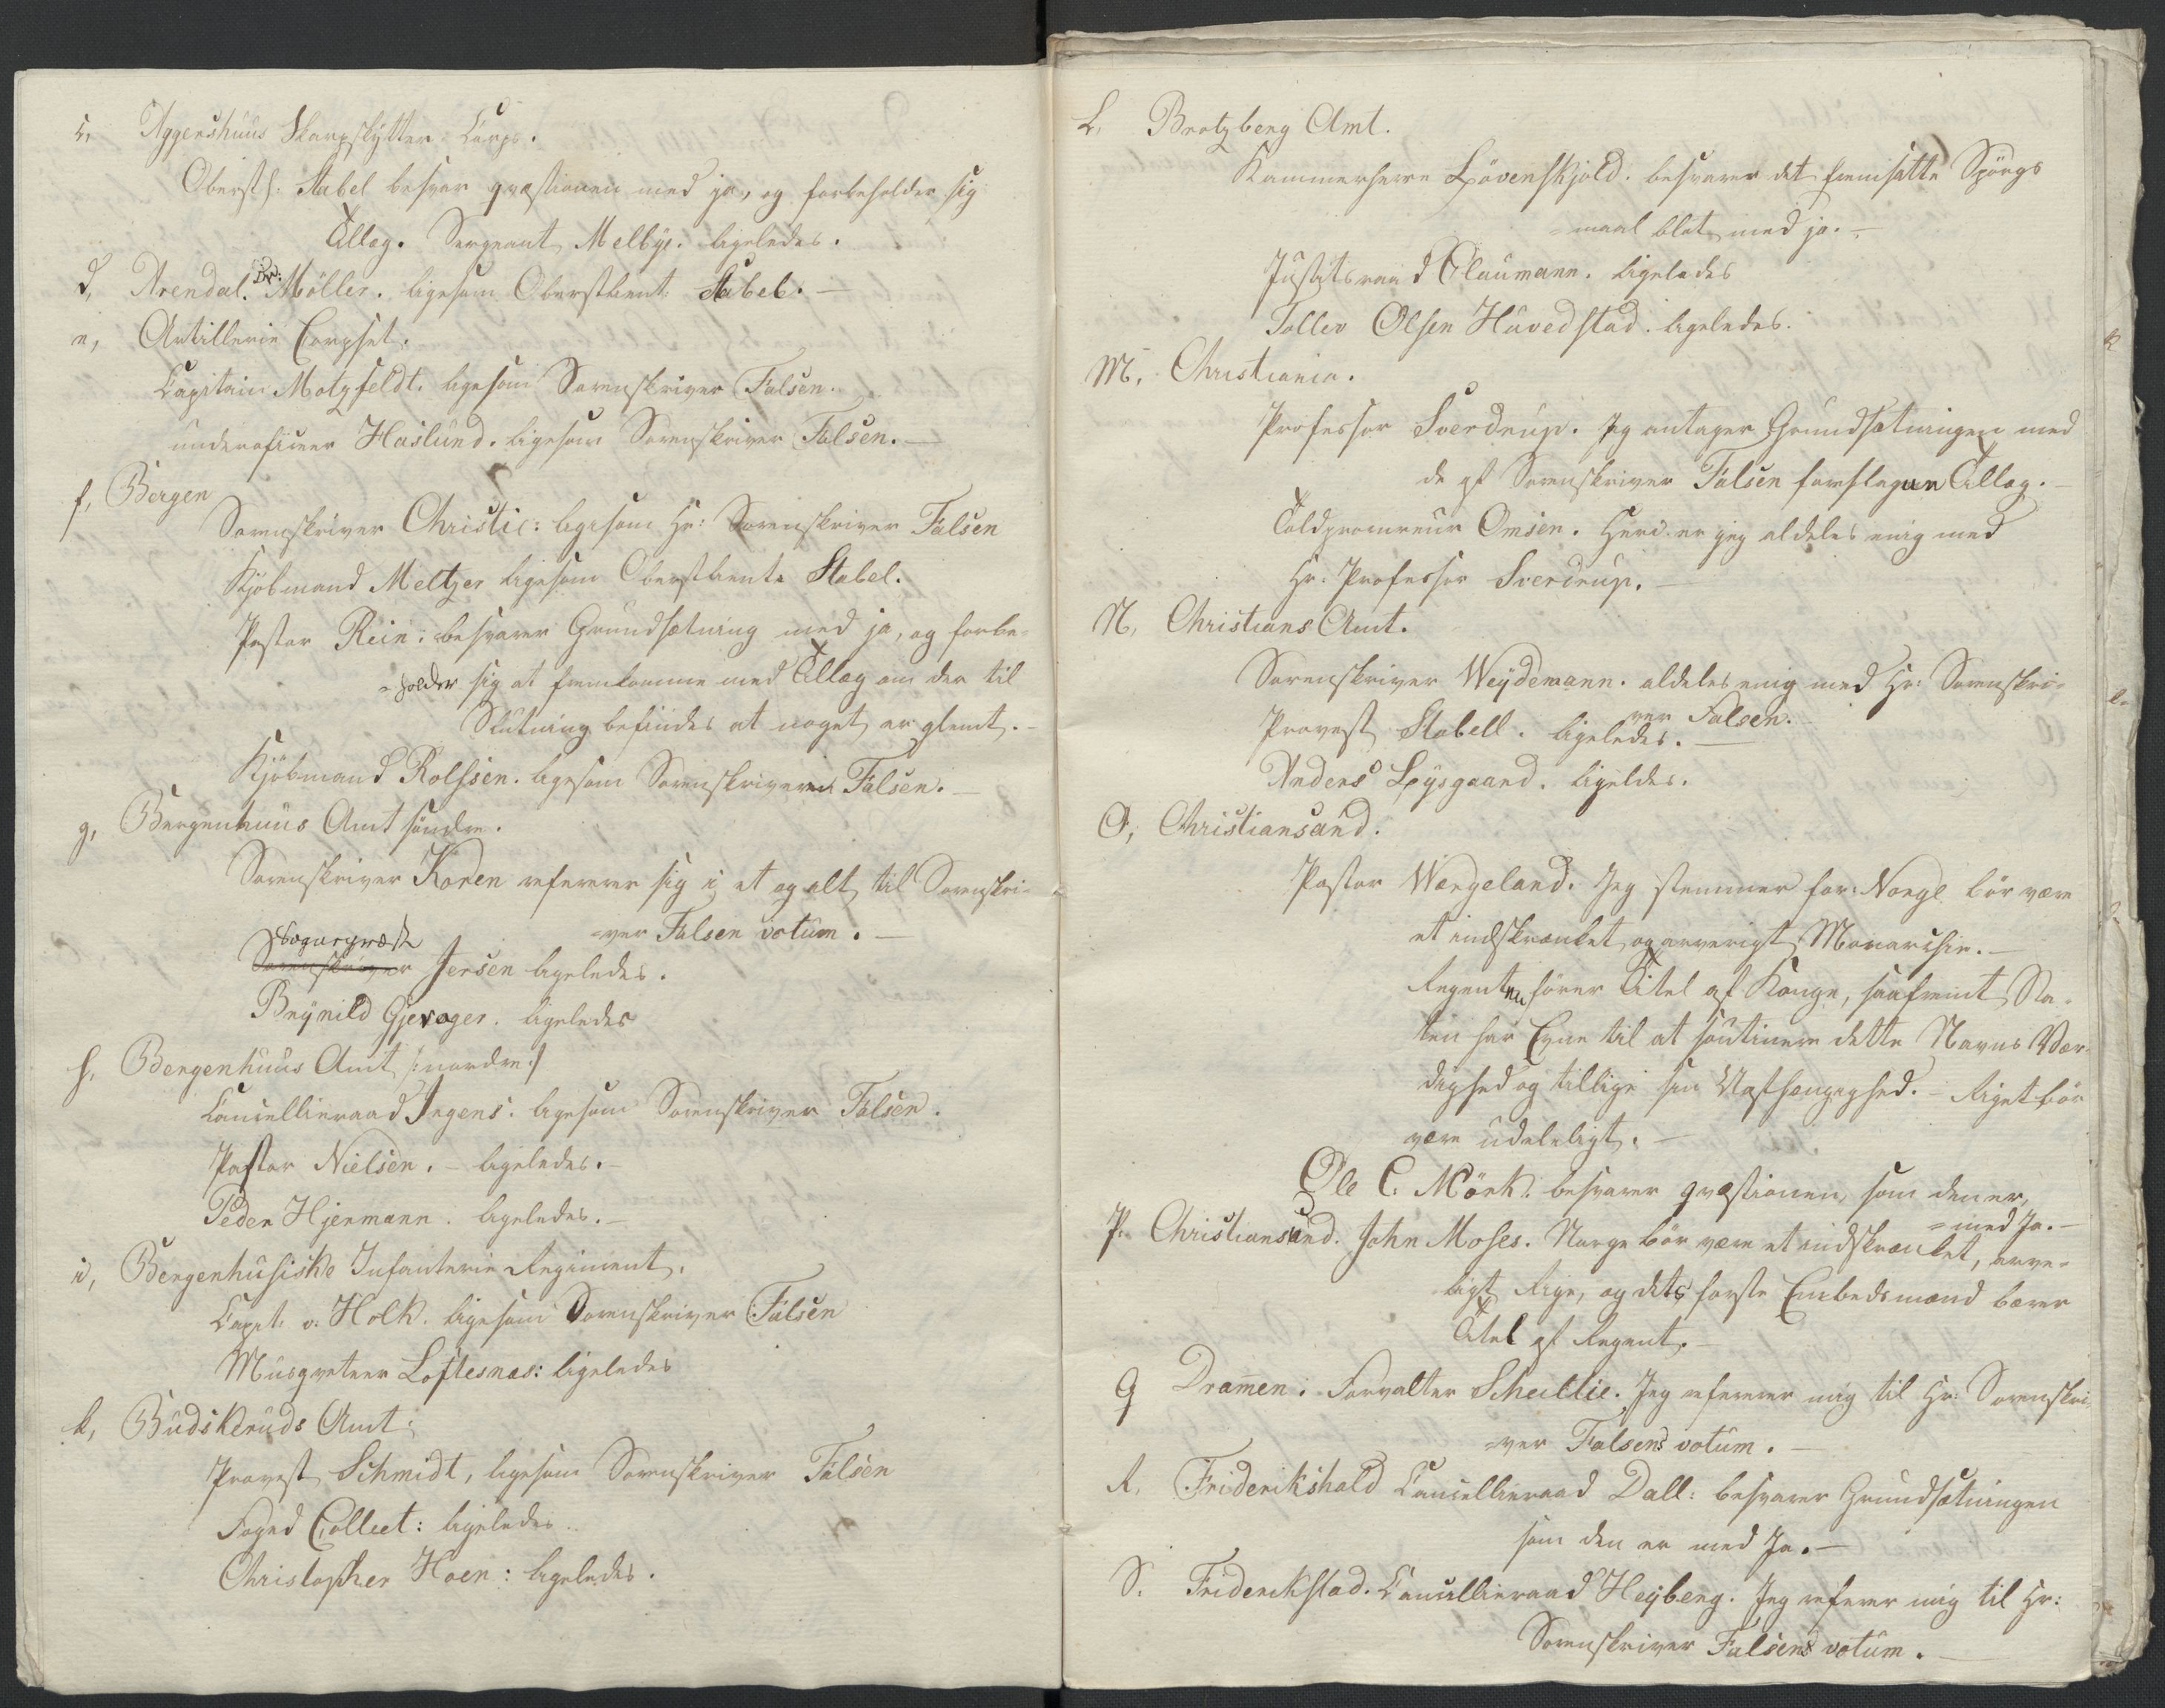 c, Aggershuus Skarpskytter Corps.
Oberstl: Stabel besvar qvæstionen med ja, og forbeholder sig
Tillæg. Sergeant Melbye. ligeledes.
d, Arendal. Dr: Möller. ligesom Oberstlieut: Stabel. —
e, Artillerie Corpset.
Capitain Motzfeldt. ligesom Sorenskriver Falsen.
underoficeer Haslund. ligesom Sorenskriver Falsen. —
f, Bergen
Sorenskriver Christie: ligesom Hr: Sorenskriver Falsen
Kjöbmand Meltzer ligesom Oberstlieut: Stabel.
Pastor Rein: besvarer Grundsætning med ja, og forbe-
-holder sig at fremkomme med Tillæg om der til
Slutning befindes at noget er glemt. —
Kjöbmand Rolfsen. ligesom Sorenskriveren Falsen. —
g, Bergenhuus Amt söndre.
Sorenskriver Koren refererer sig i et og alt til Sorenskri-
-ver Falsen votum. —
Sogneprest
Sorenskriver Jersen ligeledes.
Brynild Gjerager. ligeledes
h, Bergenhuus Amt /:nordre:/
Cancellieraad Irgens. ligesom Sorenskriver Falsen.
Pastor Nielsen. — ligeledes. —
Peder Hjermann. ligeledes. —
i, Bergenhusiske Infanterie Regiment.
Capt. v. Holk. ligesom Sorenskriver Falsen
Musqveteer Loftesnæs: ligeledes
k, Budskeruds Amt:
Provest Schmidt, ligesom Sorenskriver Falsen
Foged Collect: ligeledes
Christopher Hoen: ligeledes.
L, Bratzberg Amt.
Kammerherre Lövenskjold. besvarer det fremsatte Spörgs
-maal blot med ja. —
Justitsraad Claumann. ligeledes
Tollev Olsen Huvedstad. ligeledes.
M, Christiania.
Professor Sverdrup. Jeg antager Grundsætningen med
de af Sorenskriver Falsen foreslagne Tillæg. —
Toldprocureur Omsen. Herri er jeg aldeles enig med
Hr: Professor Sverdrup. —
N, Christians Amt.
Sorenskriver Weydemann. aldeles enig med Hr: Sorenskri-
ver Falsen.
Provest Stabell. ligeledes. —
Anders Lysgaard. ligeledes.
O, Christiansand.
Pastor Wergeland. Jeg stemmer for: Norge bör være
et indskrænket og arverigt Monarchie. —
Regenten förer Titel af Konge, saafremt Sta-
ten har Evne til at soutinere dette Navns Vær-
dighed og tillige sin Uafhængighed. — Riget bör
være udeleligt. —
Ole C. Mörk: besvarer qvæstionen, som den er,
-med Ja. —
P. Christiansund. John Moses. Norge bör være et indskrænket, arve-
ligt Rige, og dets første Embedsmand bærer
Titel af Regent. —
Q Dramen: Forvalter Scheitlie. Jeg refererer mig til Hr: Sorenskri-
-ver Falsens votum. —
R, Friderikshald Cancellieraad Dall: besvarer Grundsætningen
som den er med Ja. —
S. Friderikstad. Cancellieraad Heyberg. Jeg referer mig til Hr:
Sorenskriver Falsens votum. —